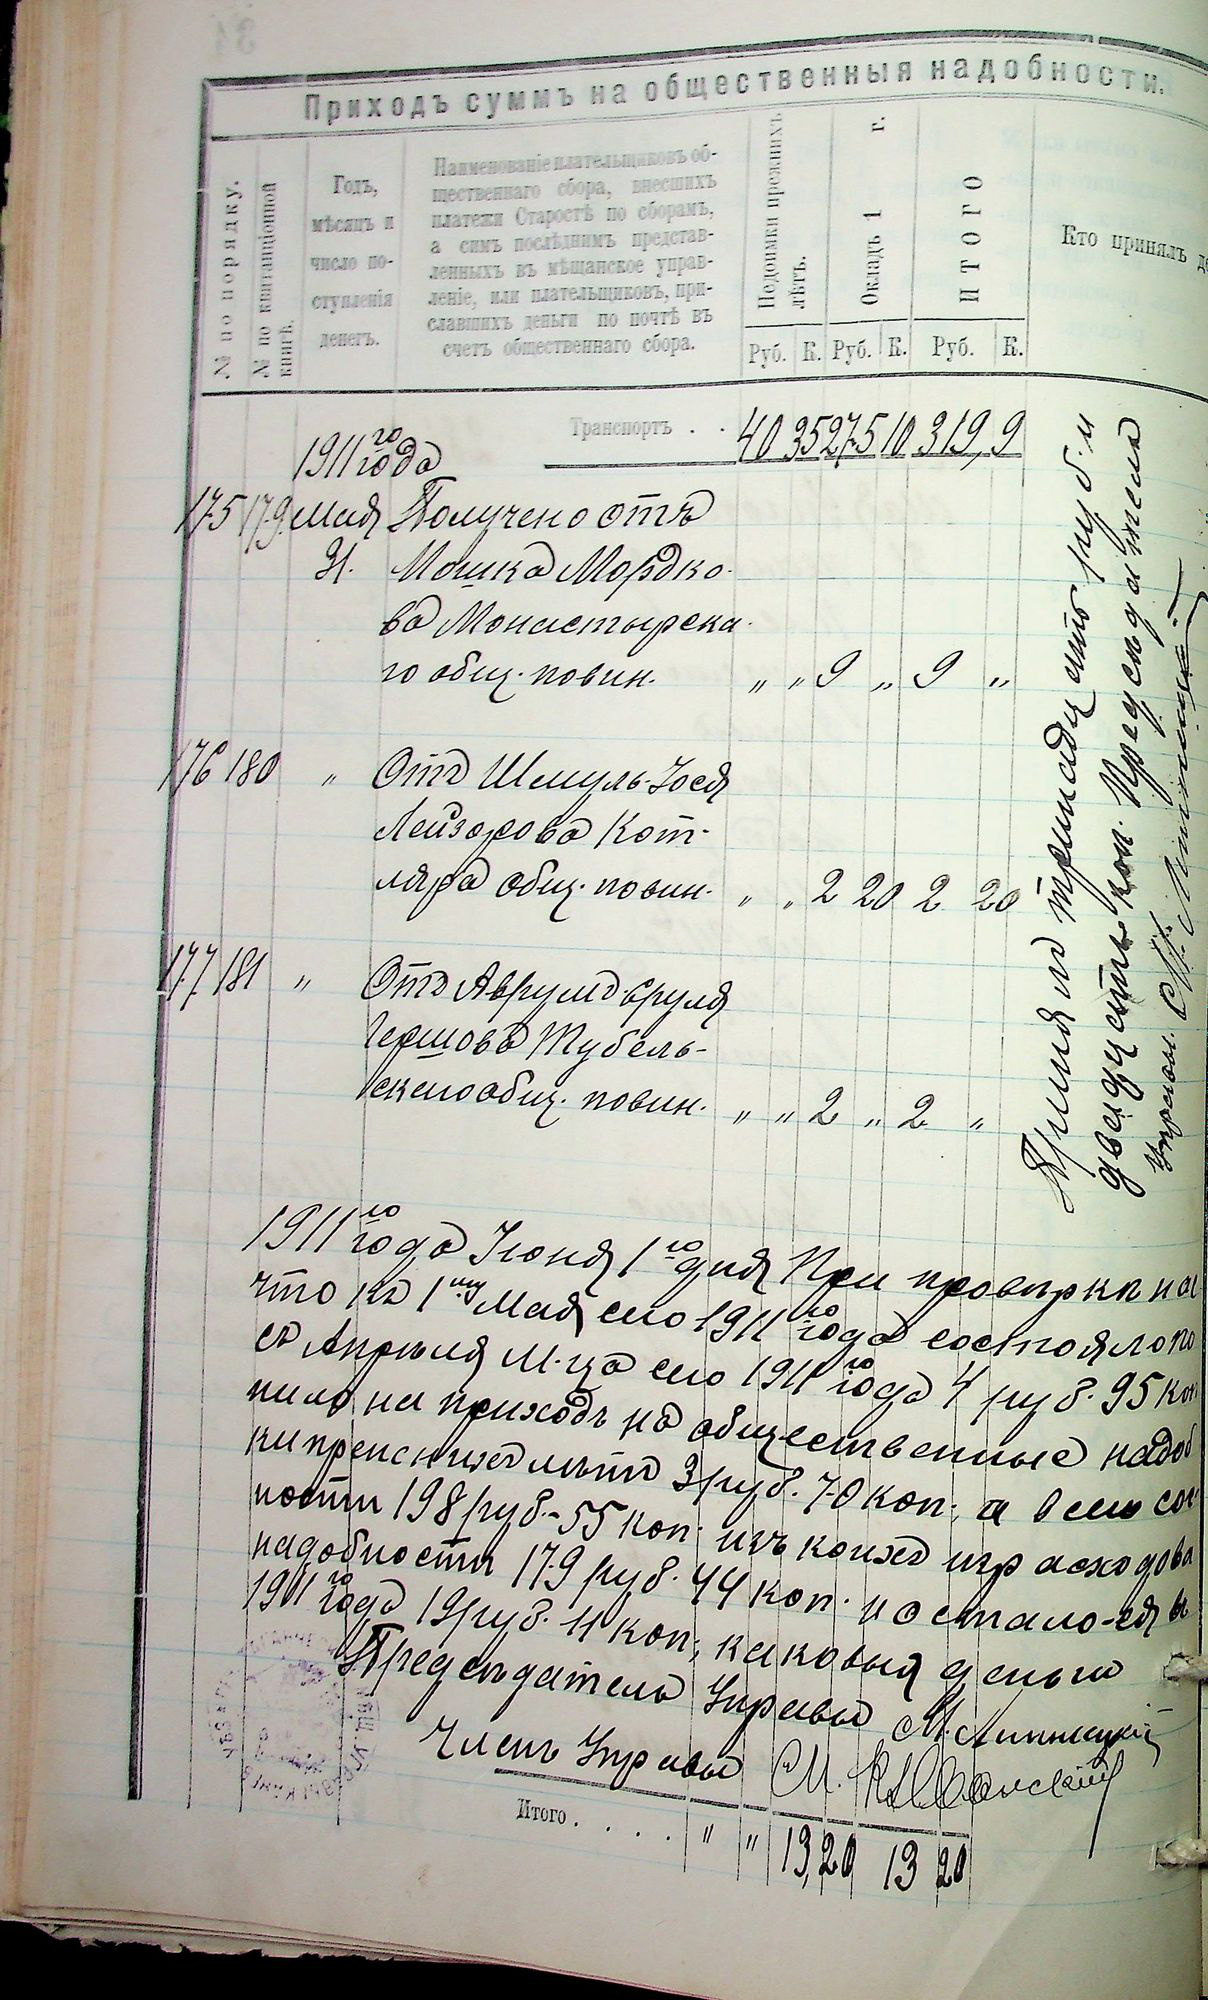 Приходъ суммъ на общественныя надобности.
№ по порядку.
№ по квитанціонной
книгѣ.
Годъ,
мѣсяцъ и
число по-
ступленія
денегъ.
Наименованіе плательщиковъ об-
щественнаго сбора, внесшихъ
платежи Старостѣ по сборамъ,
а симъ послѣднимъ представ-
ленныхъ въ мѣщанское управ-
леніе, или плательщиковъ, при-
славшихъ деньги по почтѣ въ
счетъ общественнаго сбора.
Недоимки прежнихъ
лѣтъ.
Окладъ 1 г.
ИТОГО
Кто принялъ де
Руб. К. Руб. К. Руб. К.
Транспортъ . . 40 35 275 10 319, 9
1911 го года
175 179 Мая Получено отъ
31. Мошка Мордко-
ва Монастырска-
го общ. повин. " " 9 " 9 "
176 180 " Отъ Шмуль-Іося
Лейзорова Кот-
ляра общ. повин. " " 2 20 2 20
177 181 " Отъ Аврумъ-Сруля
Гершова Тубель-
скаго общ. повин. " " 2 " 2 "
Принялъ тринадцать руб. и
двадцать коп. Предсѣдатель
Управы.
1911 го года Іюня 1 го дня При провѣркѣ на
что къ 1 му Мая сего 1911 го года состояло по
съ Апрѣля М-ца сего 1911 го года 4 руб. 95 коп
пило на приходъ на общественные надоб
ки прежнихъ лѣтъ 3 руб. 70 коп. а всего сос
ности 198 руб.-55 коп. изъ коихъ израсходова
надобности 179 руб. 44 коп. и осталося въ
1911 го года 19 руб. 11 коп., каковыя деньги
Предсѣдатель Управы М. Липницкій
Членъ Управы М.
Итого . . . . " " 13, 20 13 20